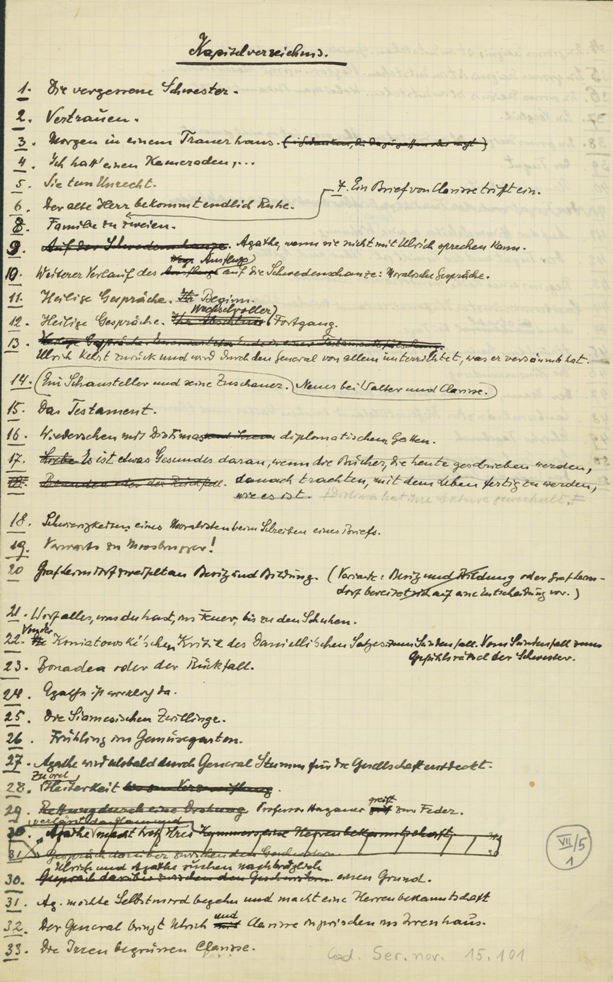 Kapitelverzeichnis.
1. Die vergessene Schwester.
2. Vertrauen.
3. Morgen in einem Trauerhaus.
4. Ich hatt' einen Kameraden,...
5. Sie tun Unrecht.
7. Ein Brief von Clarisse trifft ein.
6. Der alte Herr bekommt endlich Ruhe.
8. Familie zu zweien.
9. Auf der Schwedenschanze. Agathe, wenn sie nicht mit Ulrich sprechen kann.
Ausflugs
10. Weiterer Verlauf des auf die Schwedenschanze: Moralische Gespräche.
11. Heilige Gespräche. Beginn.
Wechselvoller
12. Heilige Gespräche. Fortgang.
13.
Ulrich kehrt zurück und wird durch den General von allem unterrichtet, was er versäumt hat.
14. (Ein Schausteller und seine Zuschauer.) Neues bei Walter und Clarisse.
15. Das Testament.
16. Wiedersehen mit Diotimas diplomatischem Gatten.
17. Es ist etwas Gesundes daran, wenn die Bücher, die heute geschrieben werden,
danach trachten, mit dem Leben fertig zu werden,
wie es ist.
18. Schwierigkeiten eines Moralisten beim Schreiben eines Briefs.
19. Vorwärts zu Moosbrugger!
20 Graf Leinsdorf zweifelt an Besitz und Bildung. (Variante: Besitz und Bildung oder Graf Leins-
dorf bereitet sich auf eine Entscheidung vor.)
21. Wirf alles, was du hast, ins Feuer, bis zu den Schuhen.
Von der
22. Koniatowski'schen Kritik des Danielli'schen Satzes zum Sündenfall. Vom Sündenfall zum
Gefühlsrätsel der Schwester.
23. Bonadea oder der Rückfall.
24. Agathe ist wirklich da.
25. Die Siamesischen Zwillinge.
26. Frühling im Gemüsegarten.
27. Agathe wird alsbald durch General Stumm für die Gesellschaft entdeckt.
Zuviel
28. Heiterkeit
greift
29. Professor Hagauer zur Feder.
30. Agathe macht
31.
Ulrich und Agathe suchen nachträglich
30. einen Grund.
31. Ag. möchte Selbstmord begehn und macht eine Herrenbekanntschaft
und
32. Der General bringt Ulrich Clarisse inzwischen ins Irrenhaus.
33. Die Irren begrüssen Clarisse.
VII/5
1
Cod. Ser. nov. 15.101